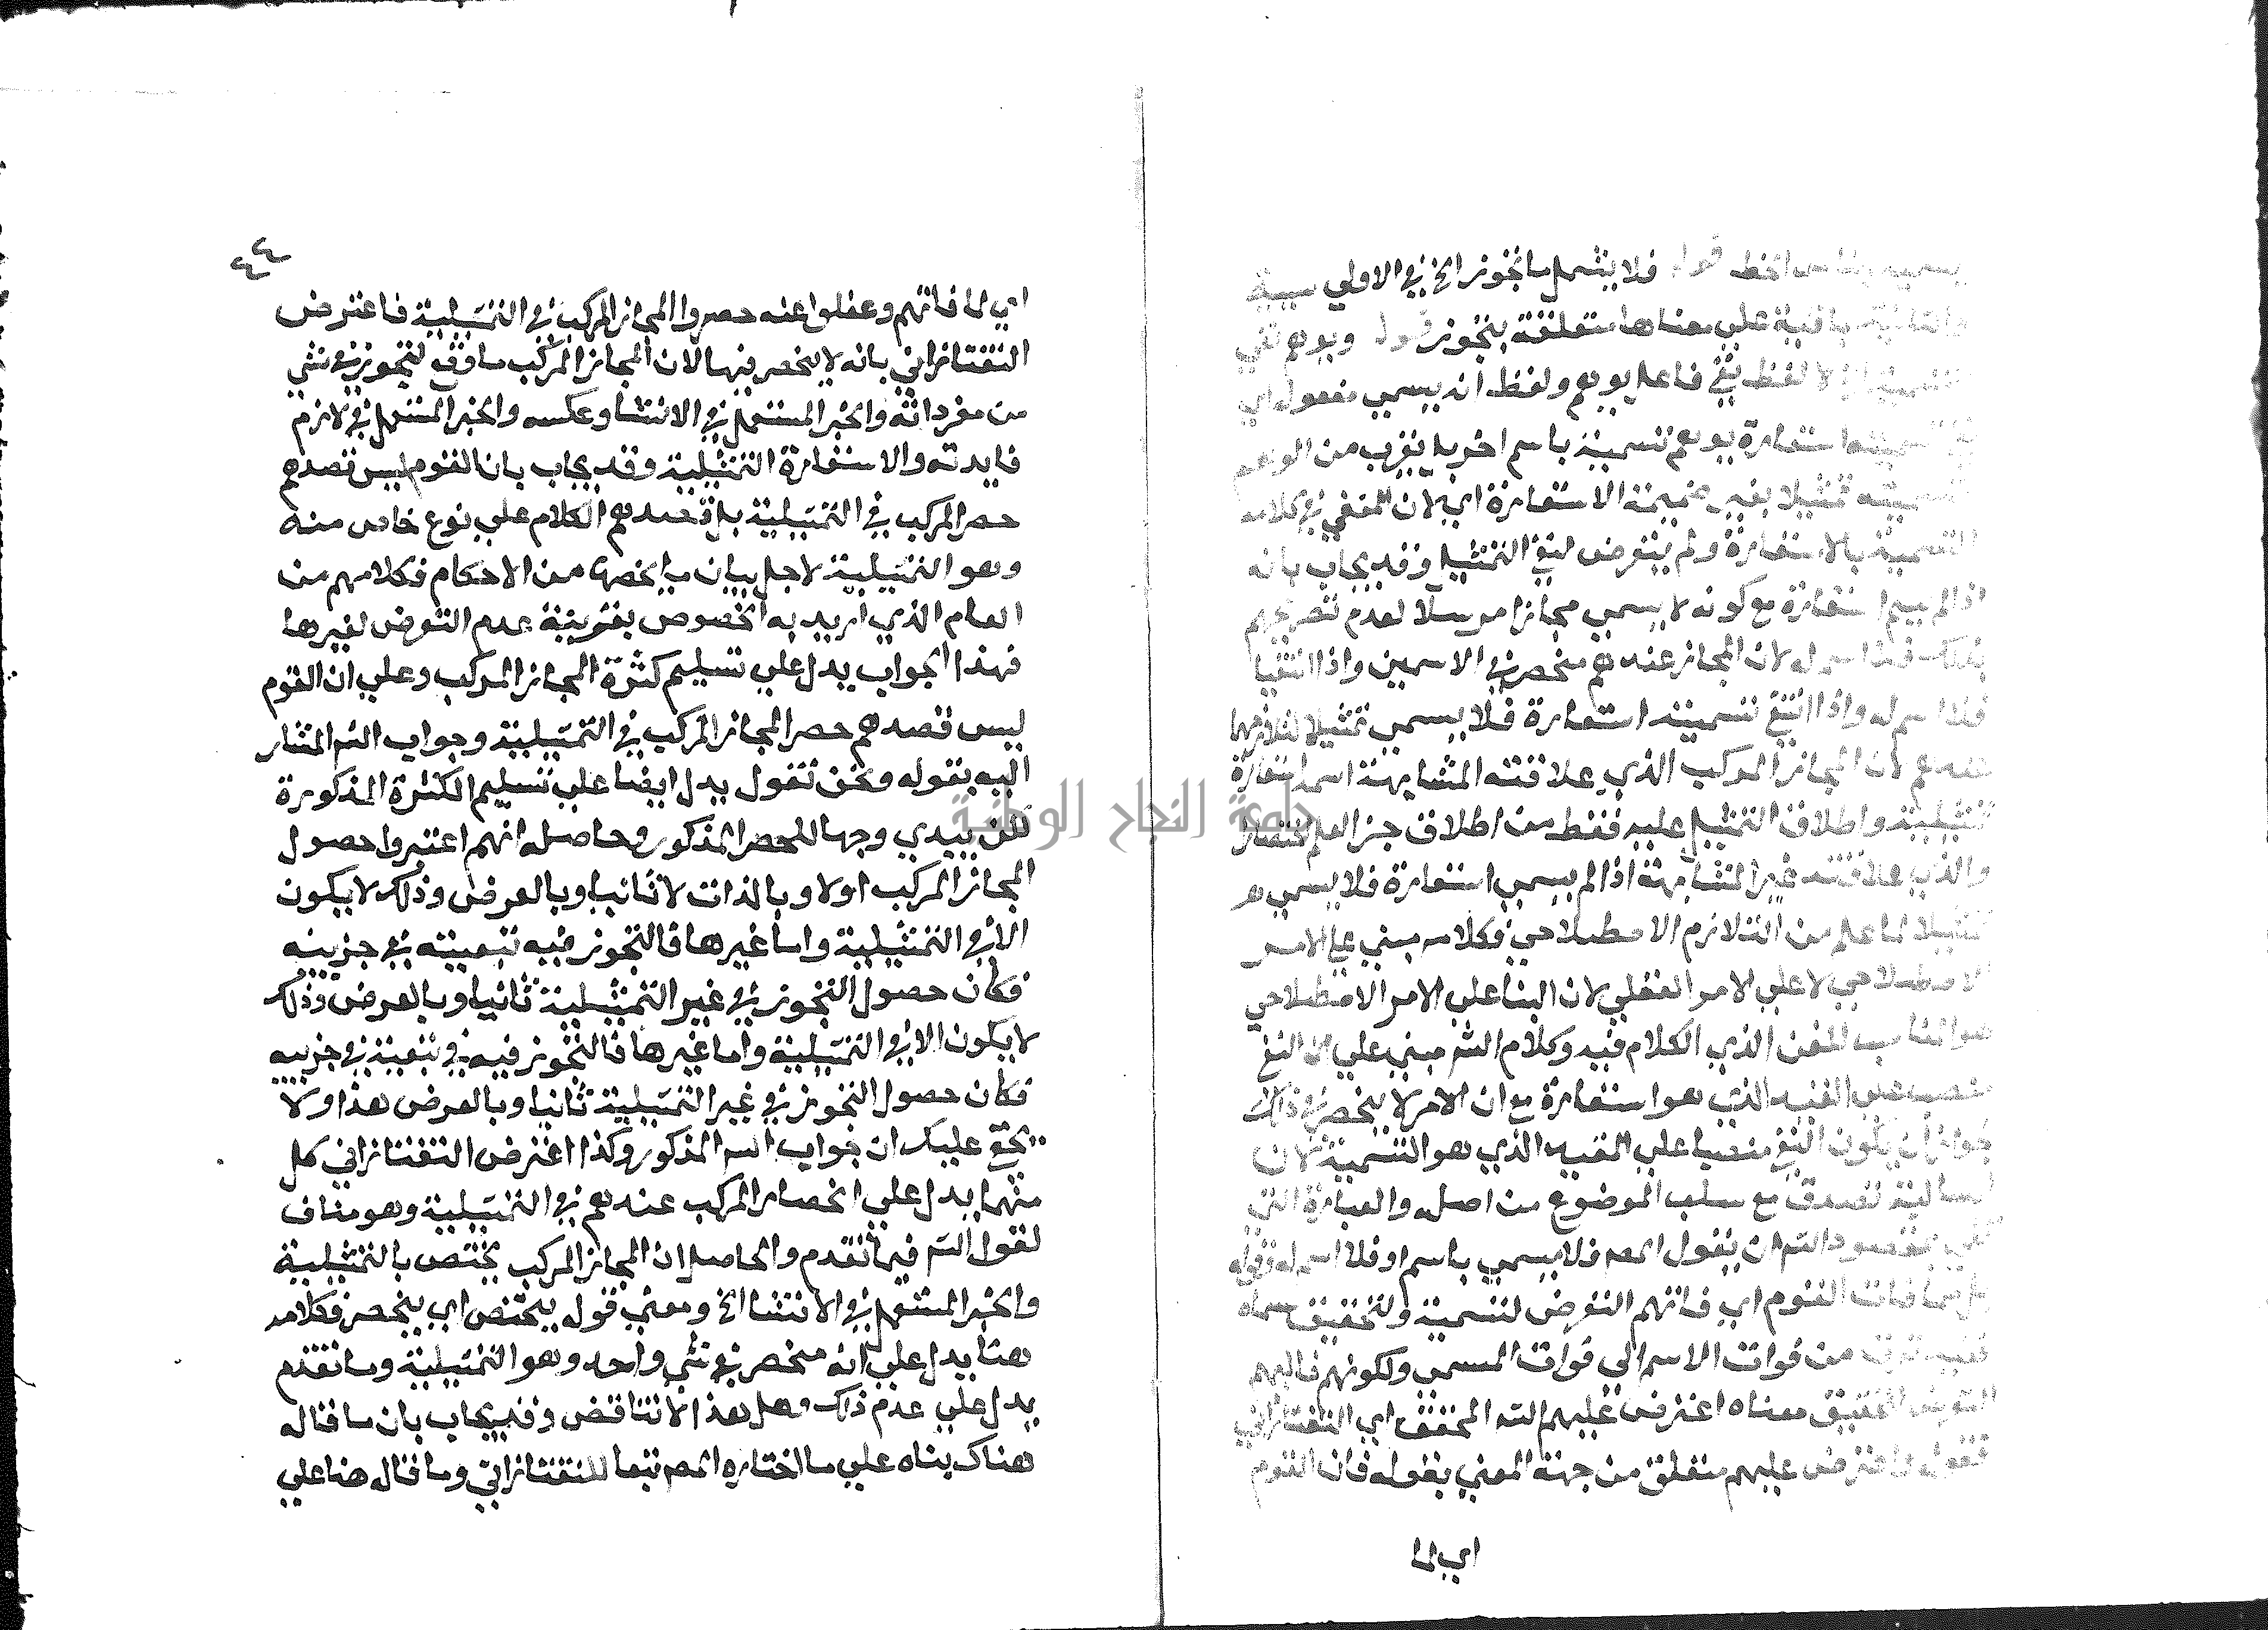 فلا يشمل ما تجوز الخ في الاولي سببية
باقية علي معناها متعلقة بتجوز قوله ويوهم نفي
لفظ نفي فاعل يوهم ولفظ انه يسمي مفعول اي
استعارة يوهم تسميته باسم اخر بل يقرب من الوهم
تمثيلا بغير ضميمة الاستعارة اي لان المنفي في كلامه
التسمية بالاستعارة ولم يتعرض لنفي التمثيل وقد يجاب بانه
اذا لم يسم استعارة مع كونه لا يسمي مجازا مرسلا لعدم تصريحهم
بذلك فلا اسم له لان المجاز عندهم منحصر في الاسمين واذا انتفيا
فلا اسم له واذا انتفي تسميته استعارة فلا يسمي تمثيلا لتلازمهما
عندهم لان المجاز المركب الذي علاقته المشابهة اسمه استعارة
تمثيلية واطلاق التمثيل عليه فقط من اطلاق جزء العلم اختصارا
والذي علاقته غير المشابهة اذا لم يسمي استعارة فلا يسمي
تمثيلا لما علم من التلازم الاصطلاحي فكلامه مبني علي الامر
الاصطلاحي لا علي الامر العقلي لان البنا علي الامر الاصطلاحي
هو المناسب للفن الذي الكلام فيه وكلام الشم مبني علي ان النفي
منصب علي القيد الذي هو استعارة مع ان الامر لا ينحصر في ذلك
لجواز ان يكون النفي منصبا علي المقيد الذي هو التسمية لان
السالبة تصدق مع سلب الموضوع من اصله والعبارة التي
مقصود الشم ان يقول المصم فلا يسمي باسم او فلا اسم له وقوله
فات القوم اي فاتهم التعرض لتسمية ولتحقيق مسماه
من فوات الاسم الي فوات المسمي ولكونهم فاتهم
التعرض لتحقيق معناه اعترض عليهم الشم المحقق اي التفتازاني
اعترض عليهم متعلق من جهة المعني بقوله فات القوم
اي لما
٤٤
اي لما فاتهم وغفلوا عنه حصروا المجاز المركب في التمثيلية فاعترض
التفتازاني بانه لا ينحصر فيها لان المجاز المركب ما وقع لتجوز في شي
من مفرداته والخبر المستعمل في الانشا وعكسه والخبر المستعمل في لازم
فايدته والاستعارة التمثيلية وقد يجاب بان القوم ليس قصدهم
حصر المركب في التمثيلية بل قصدهم الكلام علي نوع خاص منه
وهو التمثيلية لاجل بيان ما يخصها من الاحكام فكلامهم من
العام الذي اريد به الخصوص بقرينة عدم التعرض لغيرها
فهذا الجواب يدل علي تسليم كثرة المجاز المركب وعلي ان القوم
ليس قصدهم حصر المجاز المركب في التمثيلية وجواب الشم المشار
اليه بقوله ونحن نقول يدل ايضا علي تسليم الكثرة المذكورة
لكن يبدي وجها للحصر المذكور وحاصله انهم اعتبروا حصول
المجاز المركب اولا وبالذات لا ثانيا وبالعرض وذلك لا يكون
الا في التمثيلية واما غيرها فالتجوز فيه تبعيته في جزيه
فكان حصول التجوز في غير التمثيلية ثانيا وبالعرض وذلك
لا يكون الا في التمثيلية واما غيرها فالتجوز فيه في تبعية في جزيه
فكان حصول التجوز في غير التمثيلية ثانيا وبالعرض هذا ولا
يخفي عليك ان جواب الشم المذكور وكذا اعترض التفتازاني كل
منهما يدل علي انحصار المركب عندهم في التمثيلية وهو مناف
لقول الشم فيما تقدم والحاصل ان المجاز المركب يختص بالتمثيلية
والخبر المستعمل في الانشا الخ ومعني قوله يختص اي ينحصر فكلامه
هنا يدل علي انه منحصر في شي واحد وهو التمثيلية وما تقدم
يدل علي عدم ذلك وهل هذا الا تناقض وقد يجاب بان ما قاله
هناك بناه علي ما اختاره المصم تبعا للتفتازاني وما قاله هنا علي
جامعة النجاح الوطنية